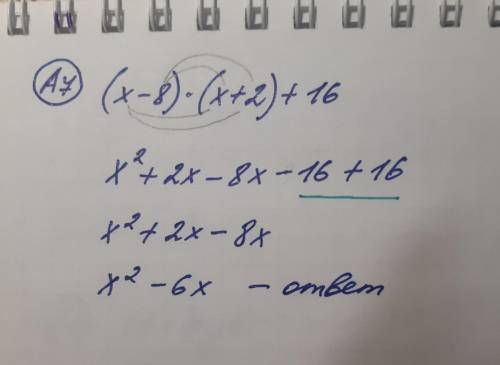 А7 (x-8)·(x+2)+16
x²+2x-8x-16+16
x²+2x-8x
x²-6x - ответ